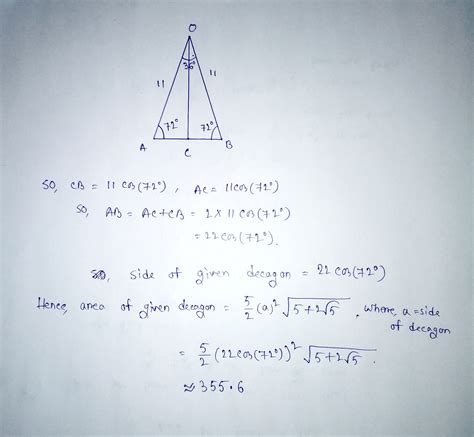 O
36°
11 11
72° 72°
A C B
SO, CB = 11 cos(72°), AC = 11cos(72°)
SO, AB = AC+CB = 2 × 11 cos(72°)
= 22 cos(72°).
So, side of given decagon = 22 cos(72°)
Hence, area of given decagon = 5/2 (a)² √5+2√5, where, a = side
of decagon
= 5/2 (22cos(72°))² √5+2√5.
≈ 355.6